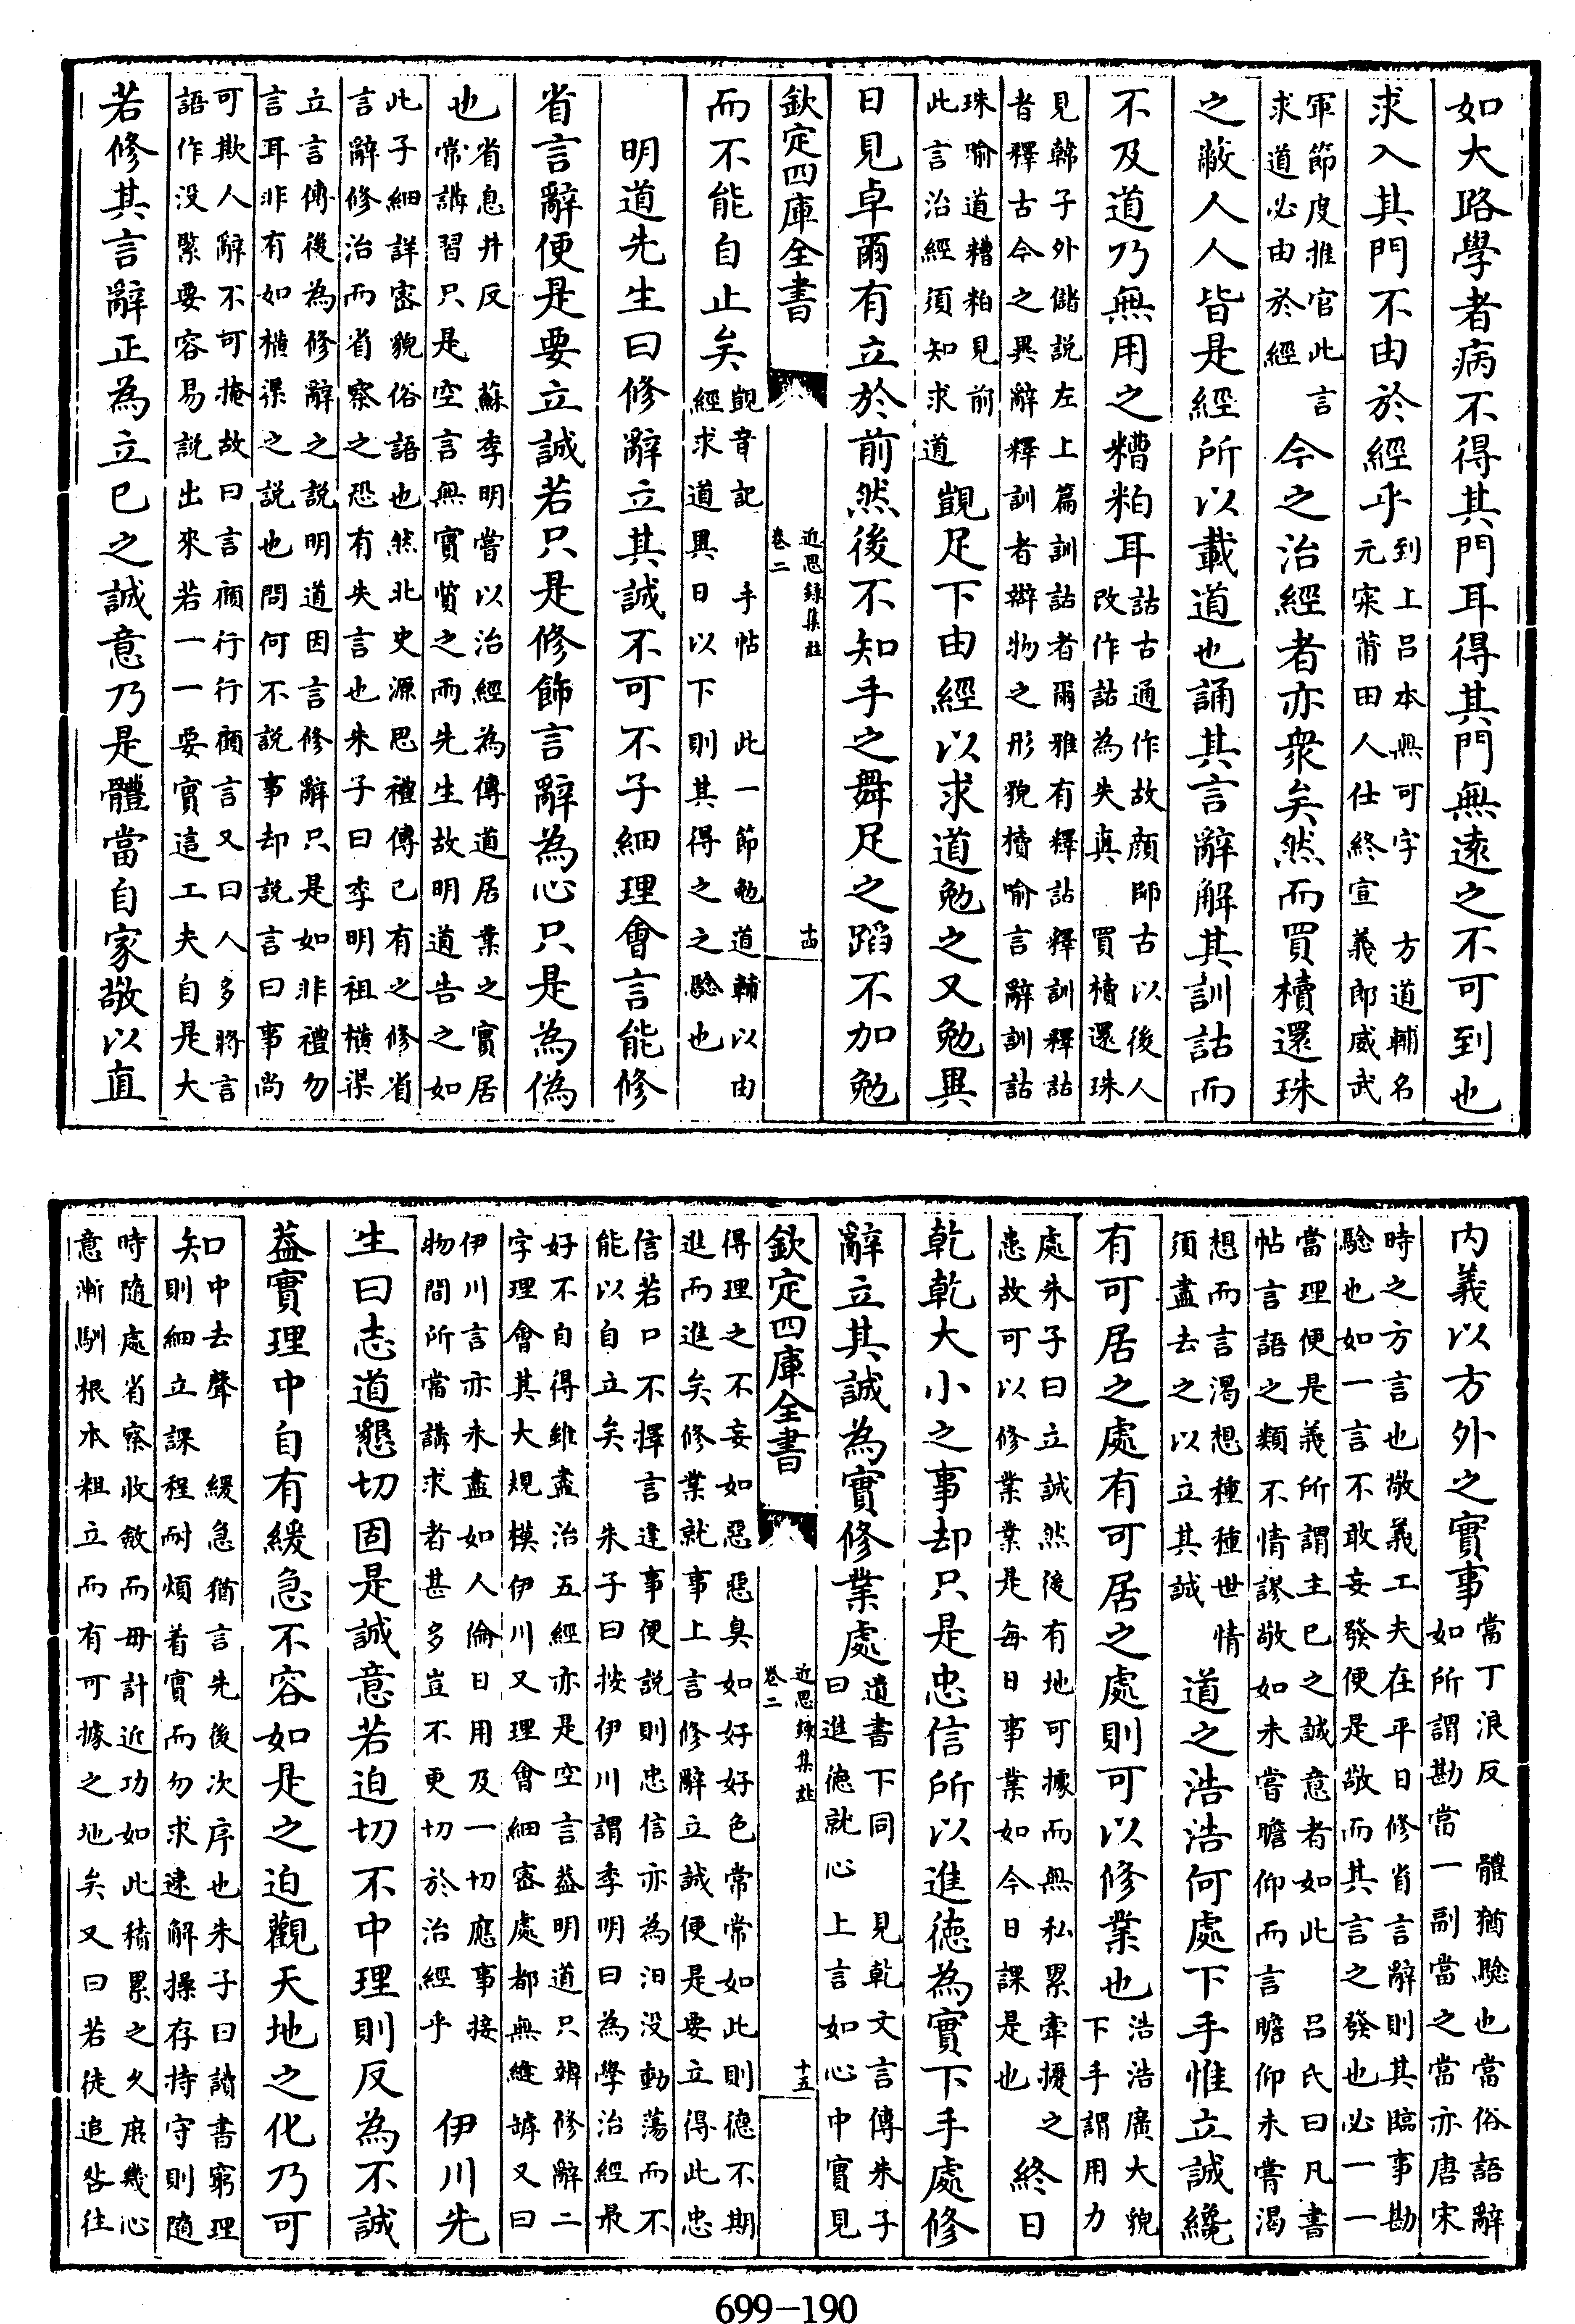 如大路學者病不得其門耳得其門無遠之不可到也
求入其門不由於經乎
到上呂本無可字　方道輔名
元寀莆田人仕終宣義郎威武
軍節度推官此言
求道必由於經
今之治經者亦衆矣然而買櫝還珠
之蔽人人皆是經所以載道也誦其言辭解其訓詁而
不及道乃無用之糟粕耳
詁古通作故顔師古以後人
改作詁為失真　買櫝還珠
見韓子外儲說左上篇訓詁者爾雅有釋詁釋訓釋詁
者釋古今之異辭釋訓者辯物之形貌櫝喻言辭訓詁
珠喻道糟粕見前
此言治經須知求道
覬足下由經以求道勉之又勉異
日見卓爾有立於前然後不知手之舞足之蹈不加勉
欽定四庫全書
近思録集註
卷二
十四
而不能自止矣
覬音記　手帖　此一節勉道輔以由
經求道異日以下則其得之之驗也
明道先生曰修辭立其誠不可不子細理會言能修
省言辭便是要立誠若只是修飾言辭為心只是為偽
也
省息井反　蘇季明嘗以治經為傳道居業之實居
常講習只是空言無實質之兩先生故明道告之如
此子細詳密貌俗語也然北史源思禮傳已有之修省
言辭修治而省察之恐有失言也朱子曰李明祖橫渠
立言傳後為修辭之説明道因言修辭只是如非禮勿
言耳非有如橫渠之説也問何不説事却説言曰事尚
可欺人辭不可掩故曰言顧行行顧言又曰人多將言
語作没緊要容易説出來若一一要實這工夫自是大
若修其言辭正為立己之誠意乃是體當自家敬以直
內義以方外之實事
當丁浪反　體猶驗也當俗語辭
如所謂勘當一副當之當亦唐宋
時之方言也敬義工夫在平日修省言辭則其臨事勘
驗也如一言不敢妄發便是敬而其言之發也必一一
當理便是義所謂主己之誠意者如此　呂氏曰凡書
帖言語之類不情謬敬如未嘗瞻仰而言瞻仰未嘗渴
想而言渴想種種世情
須盡去之以立其誠
道之浩浩何處下手惟立誠纔
有可居之處有可居之處則可以修業也
浩浩廣大貌
下手謂用力
處朱子曰立誠然後有地可據而無私累牽擾之
患故可以修業業是每日事業如今日課是也
終日
乾乾大小之事却只是忠信所以進德為實下手處修
辭立其誠為實修業處
遺書下同　見乾文言傳朱子
曰進德就心上言如心中實見
得理之不妄如惡惡臭如好好色常常如此則德不期
進而進矣修業就事上言修辭立誠便是要立得此忠
信若口不擇言逢事便説則忠信亦為汨没動蕩而不
能以自立矣　朱子曰按伊川謂季明曰為學治經最
好不自得雖盡治五經亦是空言蓋明道只辨修辭二
字理會其大規模伊川又理會細密處都無縫罅又曰
伊川言亦未盡如人倫日用及一切應事接
物間所當講求者甚多豈不更切於治經乎
伊川先
欽定四庫全書
近思録集註
卷二
十五
生曰志道懇切固是誠意若迫切不中理則反為不誠
蓋實理中自有緩急不容如是之迫觀天地之化乃可
知
中去聲　緩急猶言先後次序也朱子曰讀書窮理
則細立課程耐煩着實而勿求速解操存持守則隨
時隨處省察收斂而毋計近功如此積累之久庶幾心
意漸馴根本粗立而有可據之地矣又曰若徒追咎往
699-190